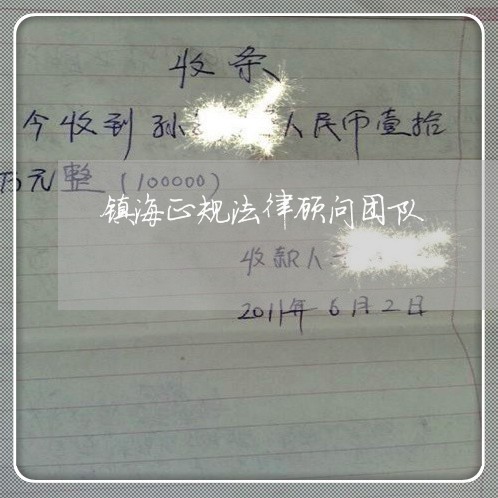 收条
今收到孙 人民币壹拾
万元整（100000）
镇海正规法律顾问团队
收款人
2011年6月2日